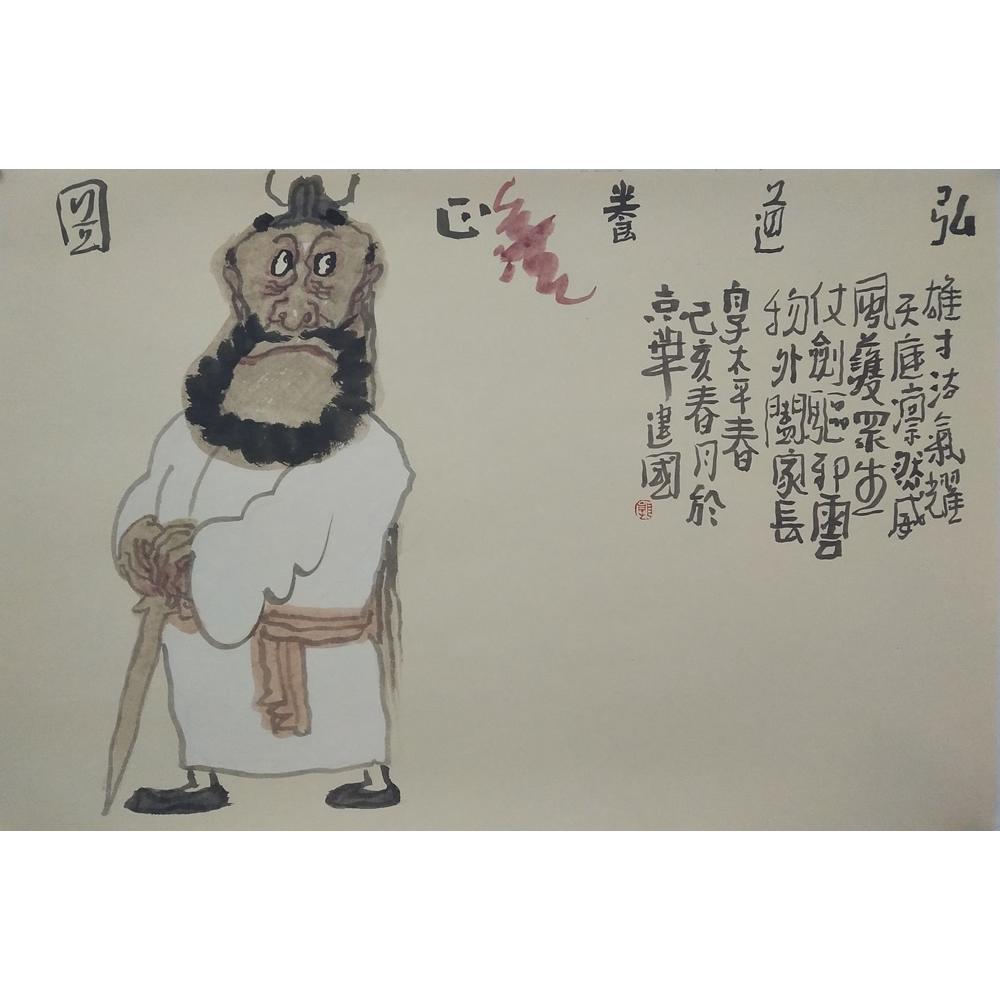 弘道養正圖
雄才浩氣耀
天庭凛然威
風護眾生
仗劍驅邪雲
物外闔家長
享太平春
己亥春月於
京華建國
郭